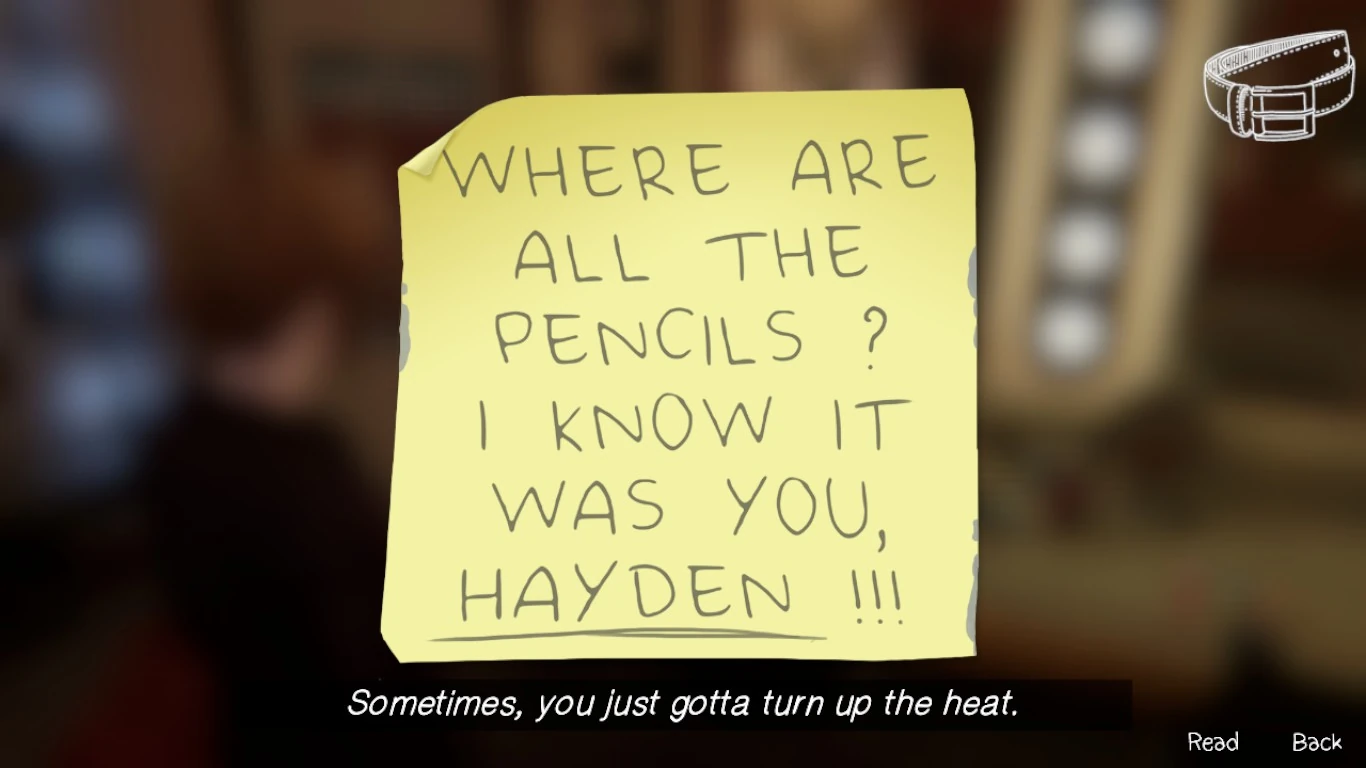 WHERE ARE
ALL THE
PENCILS ?
I KNOW IT
WAS YOU,
HAYDEN !!!
Sometimes, you just gotta turn up the heat.
Read Back